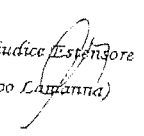 iudice Estensore
po Lamanna)